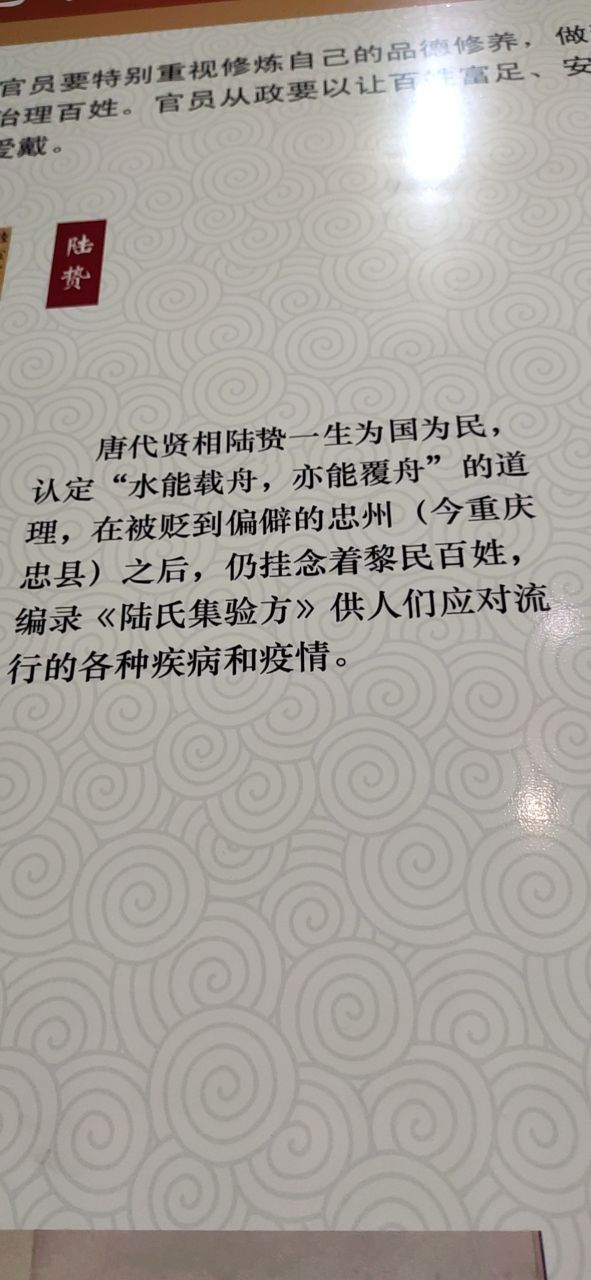 官员要特别重视修炼自己的品德修养，做
治理百姓。官员从政要以让百姓富足、安
爱戴。
陆
贽
唐代贤相陆贽一生为国为民，
认定“水能载舟，亦能覆舟”的道
理，在被贬到偏僻的忠州（今重庆
忠县）之后，仍挂念着黎民百姓，
编录《陆氏集验方》供人们应对流
行的各种疾病和疫情。